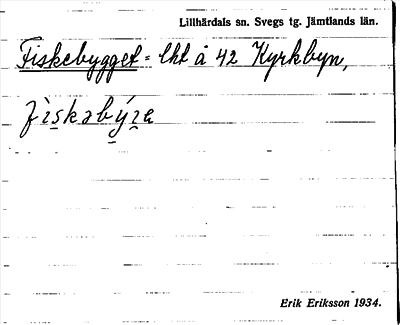 Lillhärdals sn. Svegs tg. Jämtlands län.
Fiskebygget = lht å 42 Kyrkbyn,
Erik Eriksson 1934.